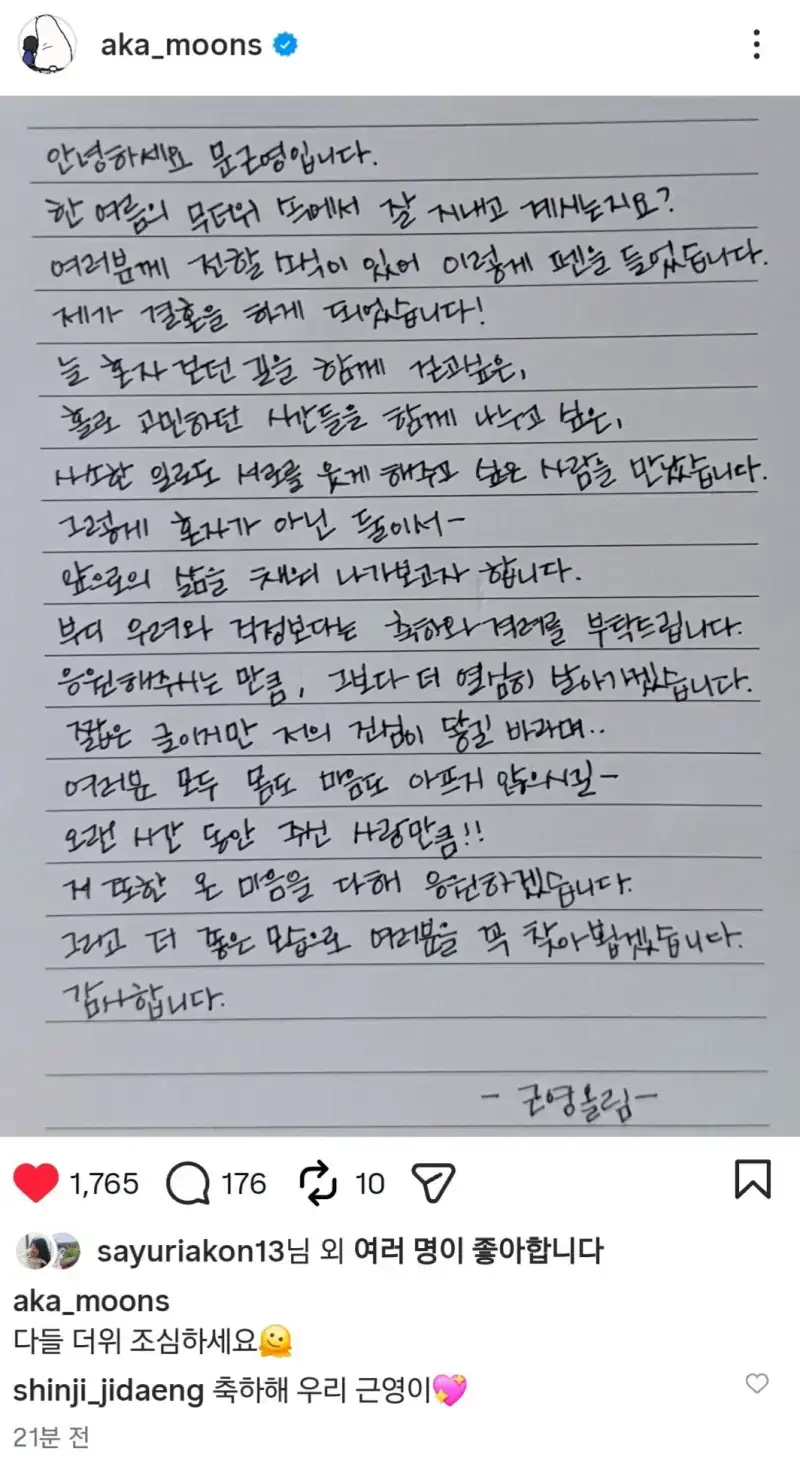 aka_moons
안녕하세요 문근영입니다.
한 여름의 무더위 속에서 잘 지내고 계시는지요?
여러분께 전할 소식이 있어 이렇게 펜을 들었습니다.
제가 결혼을 하게 되었습니다!
늘 혼자 걷던 길을 함께 걷고싶은,
홀로 고민하던 시간들을 함께 나누고 싶은,
사소한 일로도 서로를 웃게 해주고 싶은 사람을 만났습니다.
그렇게 혼자가 아닌 둘이서-
앞으로의 삶을 채워 나가보고자 합니다.
부디 우려와 걱정보다는 축하와 격려를 부탁드립니다.
응원해주시는 만큼, 그보다 더 열심히 살아가겠습니다.
짧은 글이지만 저의 진심이 닿길 바라며..
여러분 모두 몸도 마음도 아프지 않으시길-
오랜 시간 동안 주신 사랑만큼!!
저 또한 온 마음을 다해 응원하겠습니다.
그리고 더 좋은 모습으로 여러분을 꼭 찾아뵙겠습니다.
감사합니다.
- 근영올림-
1,765 176 10
sayuriakon13님 외 여러 명이 좋아합니다
aka_moons
다들 더위 조심하세요🫠
shinji_jidaeng 축하해 우리 근영이💖
21분 전